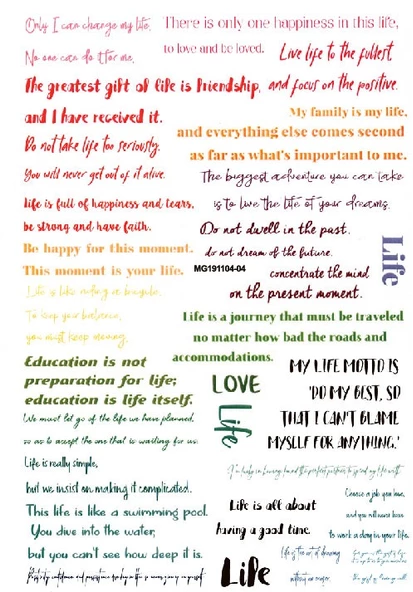 Only I can change my life.
No one can do it for me.
The greatest gift of life is friendship,
and I have received it.
Do not take life too seriously.
You will never get out of it alive.
life is full of happiness and tears,
be strong and have faith.
Be happy for this moment.
This moment is your life.
Life is like riding a bicycle.
To keep your balance,
you must keep moving.
Education is not
preparation for life;
education is life itself.
We must let go of the life we have planned,
so as to accept the one that is waiting for us.
Life is really simple,
but we insist on making it complicated.
This life is like a swimming pool.
You dive into the water,
but you can't see how deep it is.
There is only one happiness in this life,
to love and be loved.
Live life to the fullest,
and focus on the positive.
My family is my life,
and everything else comes second
as far as what's important to me.
The biggest adventure you can take
is to live the life of your dreams.
Do not dwell in the past,
do not dream of the future,
MG191104-04
concentrate the mind
on the present moment.
Life
Life is a journey that must be traveled
no matter how bad the roads and
accommodations.
LOVE
Life
MY LIFE MOTTO IS
'DO MY BEST, SO
THAT I CAN'T BLAME
MYSELF FOR ANYTHING.'
Life is all about
having a good time.
Choose a job you love,
and you will never have
to work a day in your life.
Life is the art of drawing
without an eraser.
Life